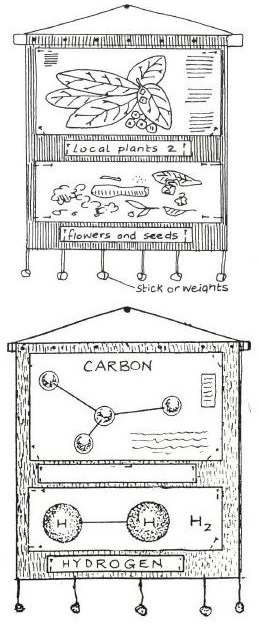 Local plants 2
flowers and seeds
stick or weights
CARBON
H H H₂
HYDROGEN